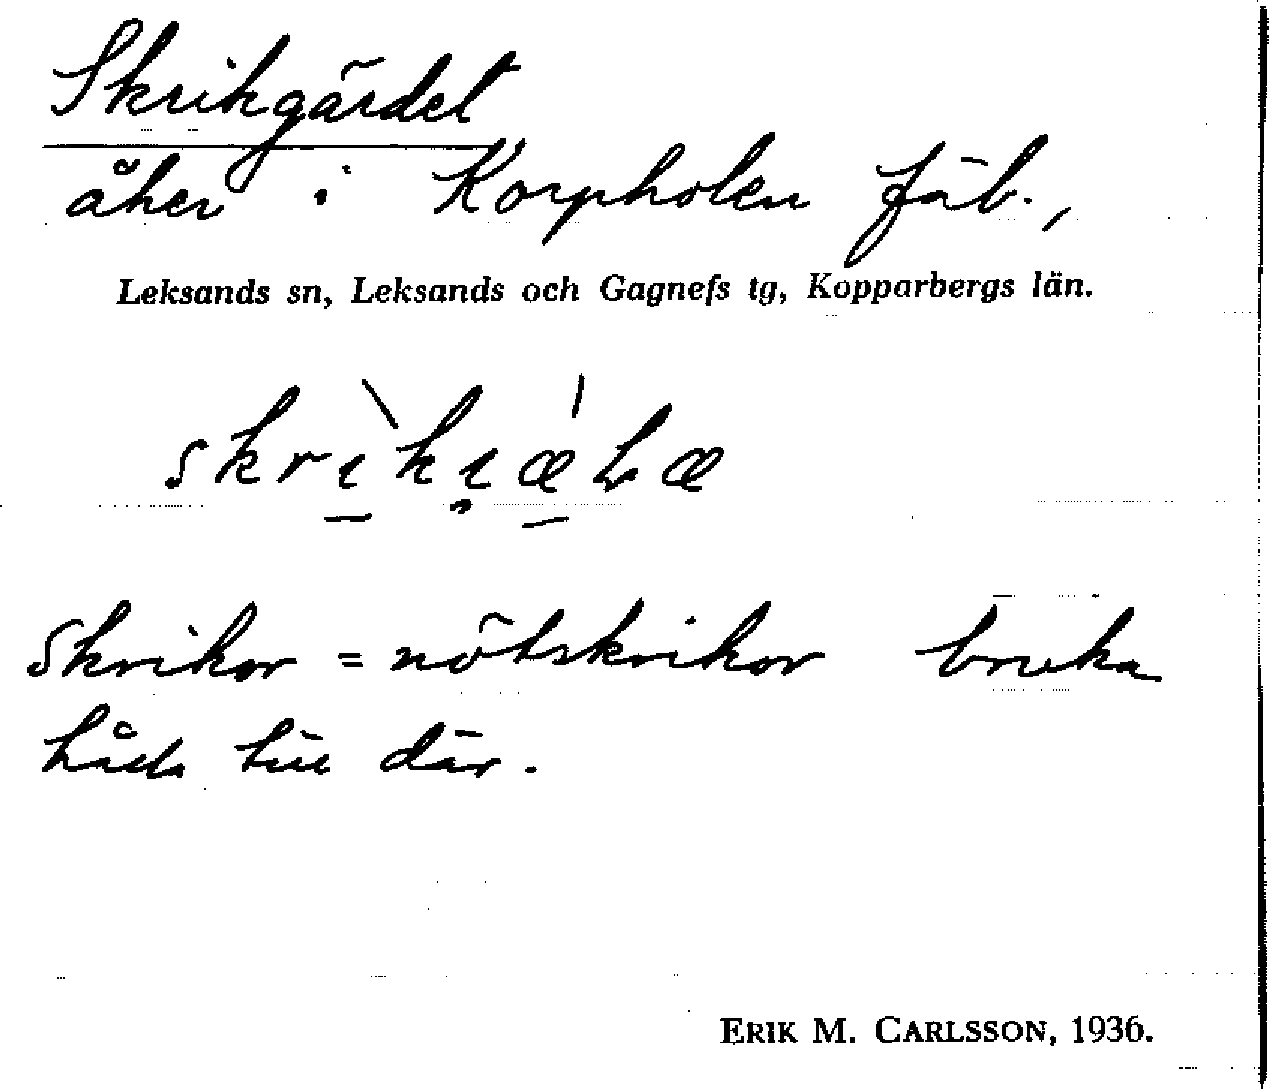 Skrikgärdet
åker i Korpholen fäb.,
Leksands sn, Leksands och Gagnefs tg, Kopparbergs län.
skrikor = nötskrikor bruka
hålla till där.
ERIK M. CARLSSON, 1936.